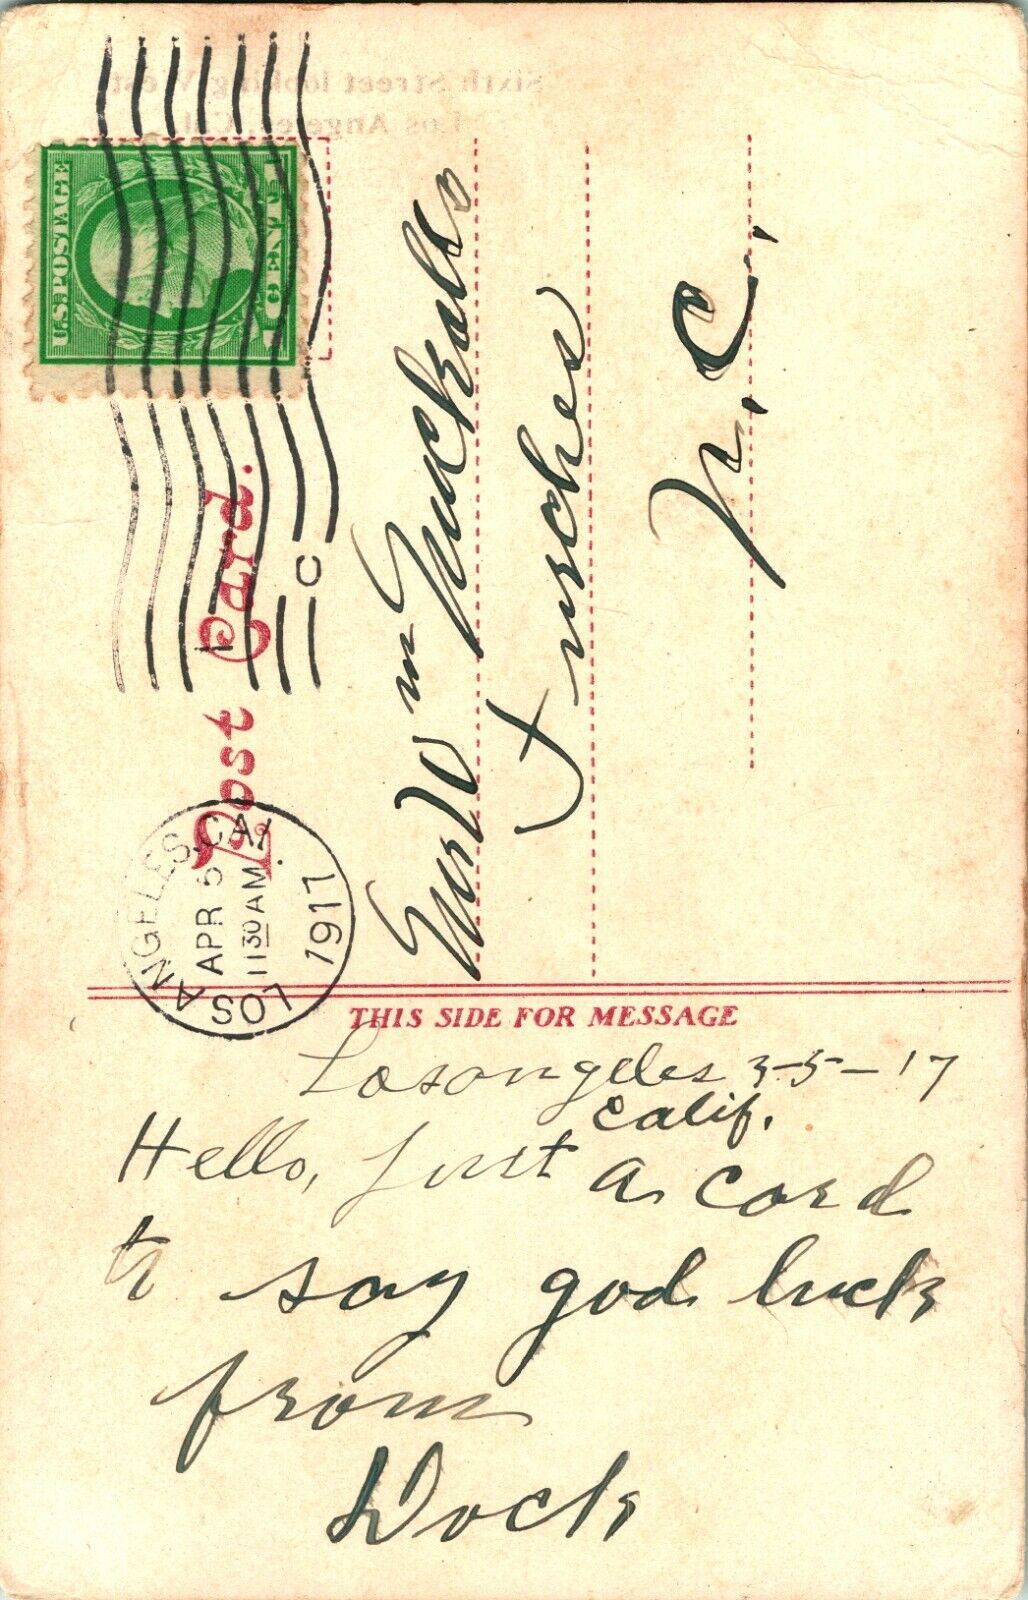 Sixth Street looking West
Los Angeles, Cal.
U.S. POSTAGE
1 CENT 1
Post Card.
LOS ANGELES, CAL.
APR 5
11 30 AM
1917
C
m
N. C.
THIS SIDE FOR MESSAGE
Losangeles 3-5-17
Calif.
Hello, Just a Cord
to say god luck
from
Dock